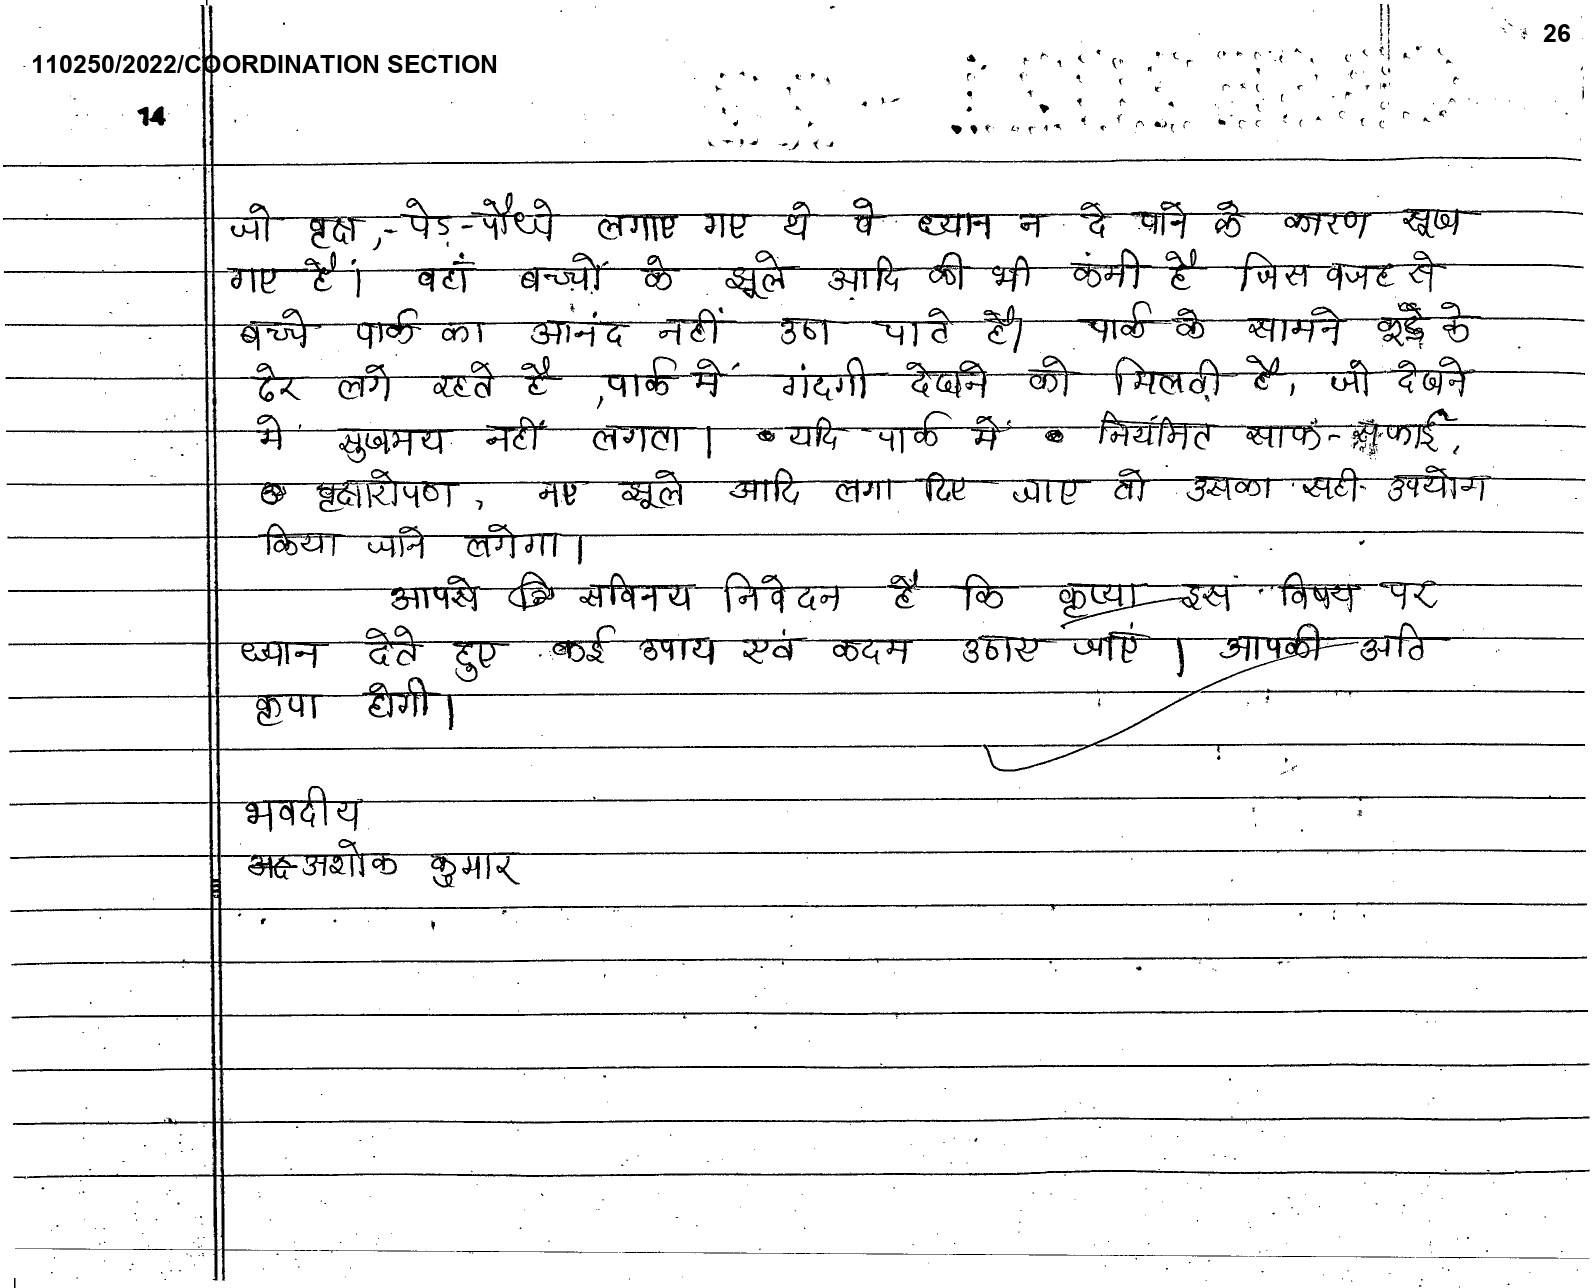 26
110250/2022/COORDINATION SECTION
14
जो वृक्ष,-पेड़-पौध्ये लगाए गए थे वे ध्यान न दे पाने के कारण सूख
गए हैं। वहाँ बच्चों के झूले आदि की भी कंमी है जिस वजह से
बच्चे पार्क का आनंद नहीं उठा पाते है। पार्क के सामने कूड़े के
ढेर लगे रहते है ,पार्क में गंदगी देखने को मिलती है, जो देखने
में सुखमय नहीं लगता। यदि पार्क में नियमित साफ-सफाई,
वृक्षारोपण, नए झूले आदि लगा दिए जाए तो उसका सही उपयोग
किया जाने लगेगा।
आपसे सविनय निवेदन है कि कृप्या इस विषय पर
ध्यान देते हुए कई उपाय एवं कदम उठाए जाएं। आपकी अति
कृपा होगी।
भवदीय
अशोक कुमार